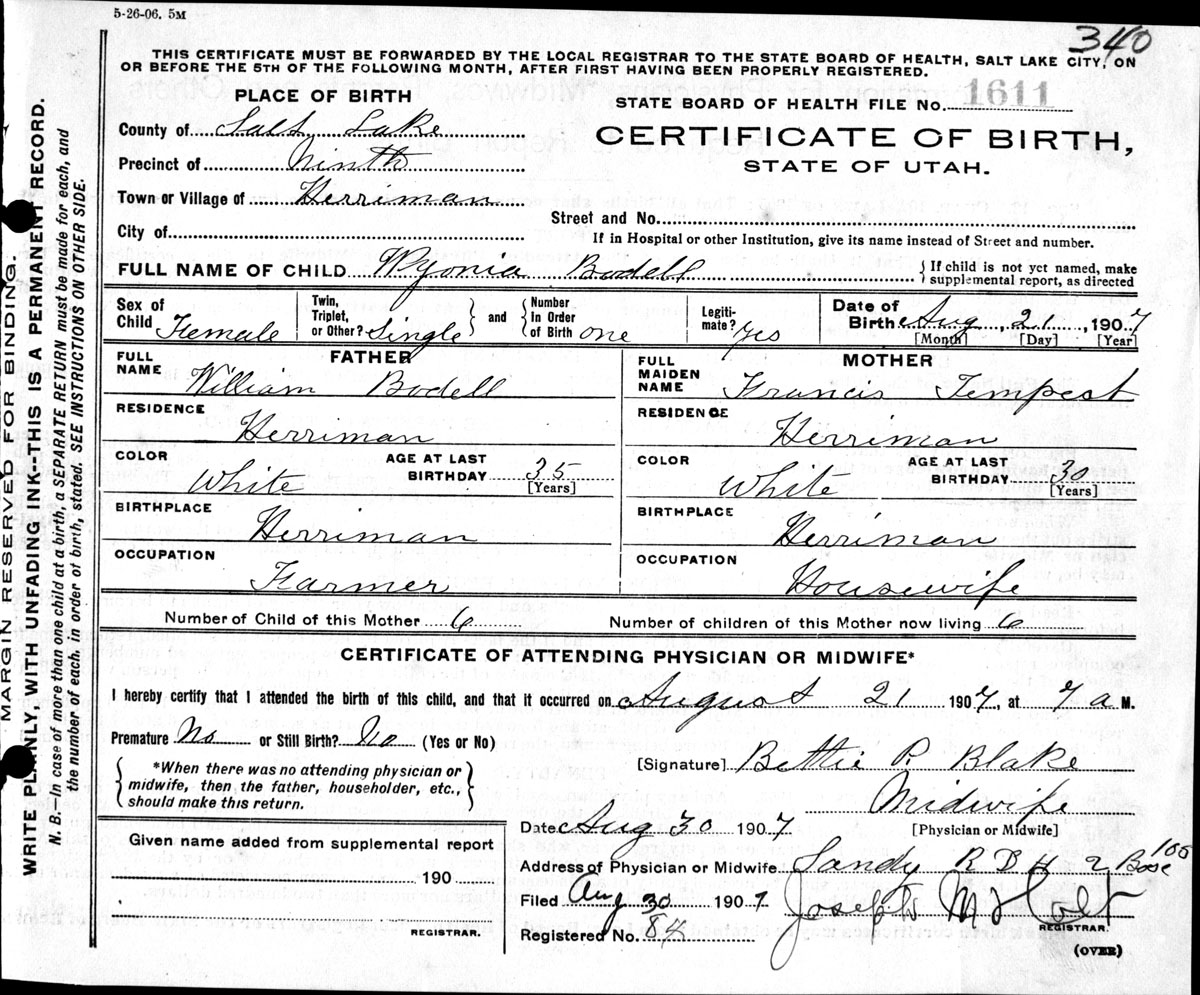 5-26-06. 5M
340
THIS CERTIFICATE MUST BE FORWARDED BY THE LOCAL REGISTRAR TO THE STATE BOARD OF HEALTH, SALT LAKE CITY, ON
OR BEFORE THE 5TH OF THE FOLLOWING MONTH, AFTER FIRST HAVING BEEN PROPERLY REGISTERED.
PLACE OF BIRTH
STATE BOARD OF HEALTH FILE No. 1611
County of Salt Lake
CERTIFICATE OF BIRTH,
Precinct of Ninth
STATE OF UTAH.
Town or Village of Herriman
Street and No.
City of
If in Hospital or other Institution, give its name instead of Street and number.
FULL NAME OF CHILD Wyonia Bodell { If child is not yet named, make supplemental report, as directed
Sex of Child Female Twin, Triplet, or Other? Single } and { Number In Order of Birth one Legiti-mate? Yes Date of Birth Aug, 21, 1907
[Month] [Day] [Year]
FATHER
MOTHER
FULL NAME William Bodell
FULL MAIDEN NAME Francis Tempest
RESIDENCE Herriman
RESIDENCE Herriman
COLOR White AGE AT LAST BIRTHDAY 35 [Years]
COLOR White AGE AT LAST BIRTHDAY 30 [Years]
BIRTHPLACE Herriman
BIRTHPLACE Herriman
OCCUPATION Farmer
OCCUPATION Housewife
Number of Child of this Mother 6 Number of children of this Mother now living 6
CERTIFICATE OF ATTENDING PHYSICIAN OR MIDWIFE*
I hereby certify that I attended the birth of this child, and that it occurred on August 21 1907, at 7 a M.
Premature No or Still Birth? No (Yes or No)
{ *When there was no attending physician or
midwife, then the father, householder, etc.,
should make this return. }
[Signature] Bettie P. Blake
Midwife
[Physician or Midwife]
Date Aug 30 1907
Given name added from supplemental report
190
REGISTRAR.
Address of Physician or Midwife Sandy R D # 2 Box 100
Filed Aug 30 1907 Joseph M Holt
REGISTRAR.
Registered No. 84
(OVER)
MARGIN RESERVED FOR BINDING.
WRITE PLAINLY, WITH UNFADING INK--THIS IS A PERMANENT RECORD.
N. B.—In case of more than one child at a birth, a SEPARATE RETURN must be made for each, and
the number of each, in order of birth, stated. SEE INSTRUCTIONS ON OTHER SIDE.